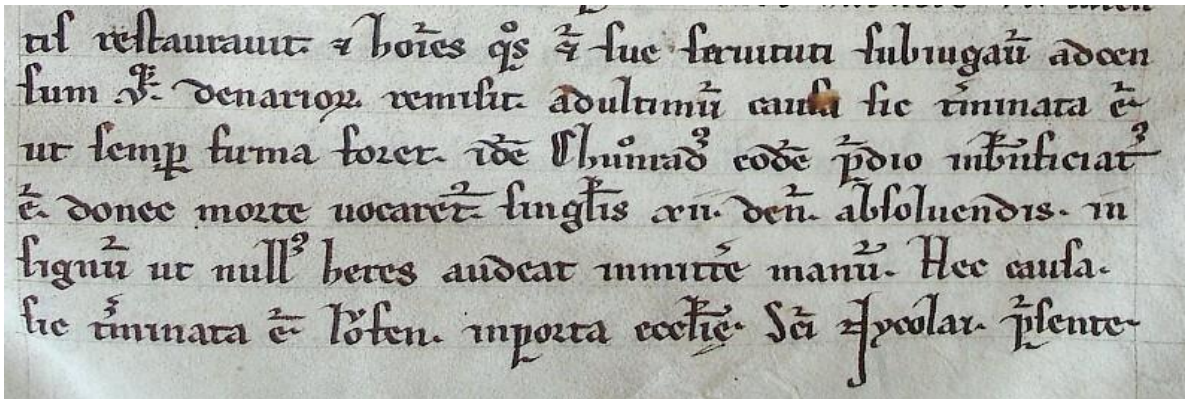 tis restaurauit. ⁊ hoīes qͦs ⁊̄ sue seruituti subiugaū adcen
sum .v. denarioꝝ remisit. adultimū causa sic t̾minata ē.
ut semꝑ firma foret. idē Chuͦnradꝰ eodē p̄dio inb̄ńficiatꝰ
ē. donec morte uocaret᷑. singłis xii. deń. absoluendis. in
signū ut nullꝰ heres audeat inmitt̾e manū. Hec causa.
sic t̾minata ē. inporta eccłie. Sc̄i Nycolai. p̄sente